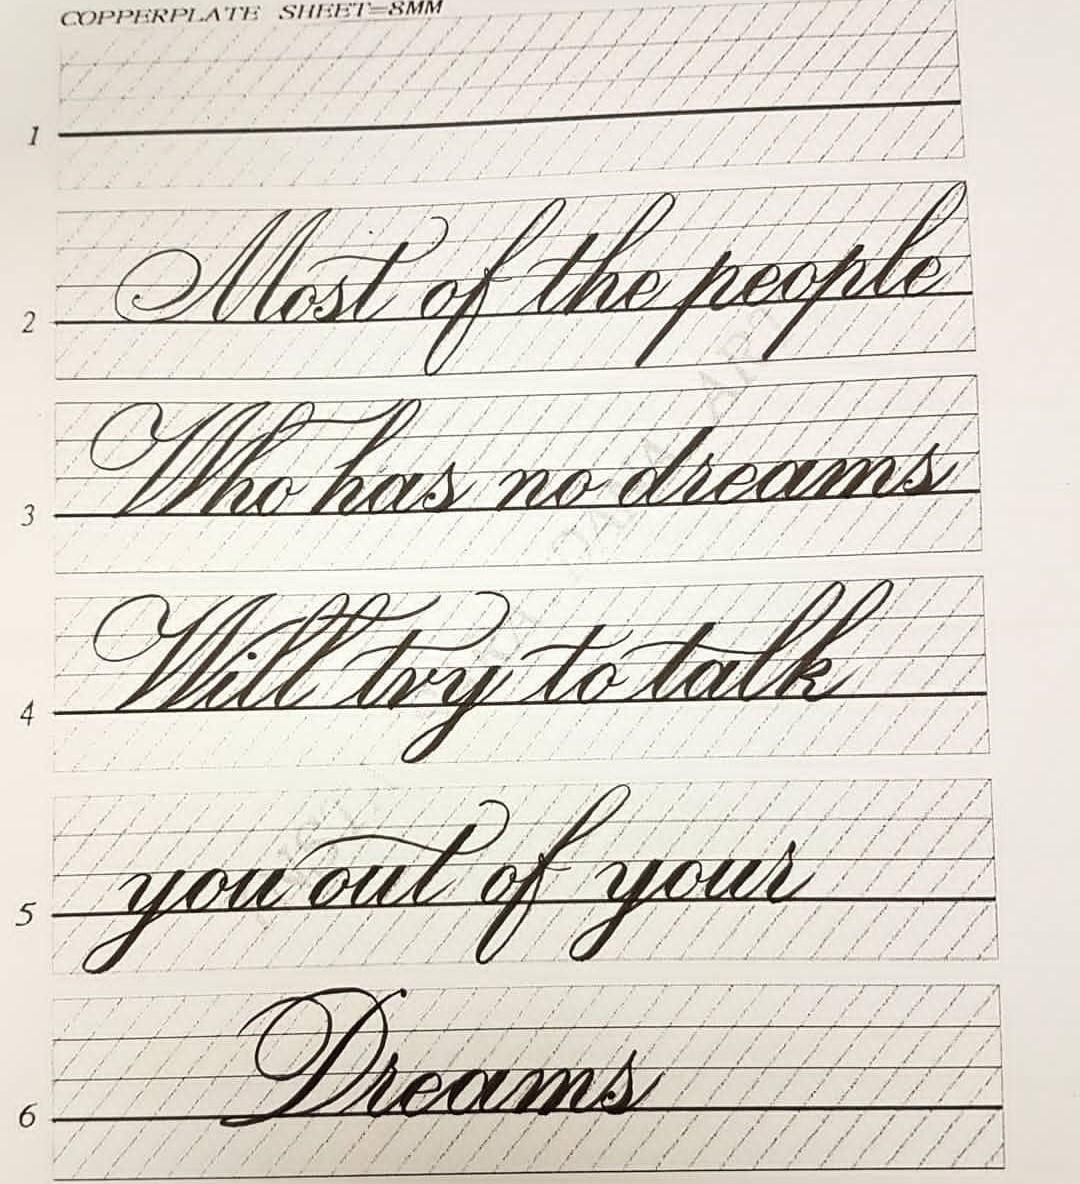 COPPERPLATE SHEET=8MM
1
2 Most of the people
3 Who has no dreams
4 Will try to talk
5 you out of your
6 Dreams